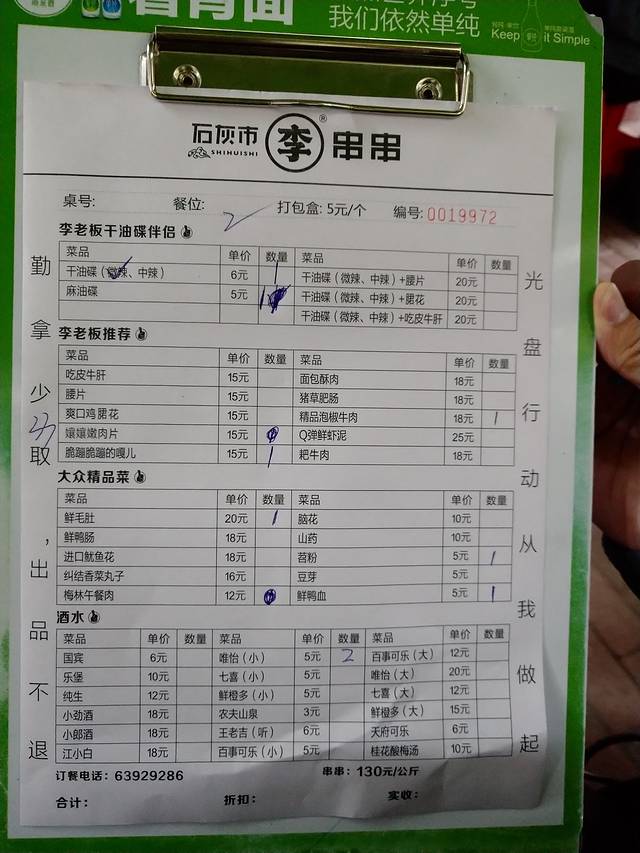 我们依然单纯
Keep it Simple
石灰市 李® 串串
SHIHUISHI
桌号: 餐位: 2 打包盒: 5元/个 编号: 0019972
李老板干油碟伴侣
菜品 单价 数量 菜品 单价 数量
干油碟（微辣、中辣） 6元 1 干油碟（微辣、中辣）+腰片 20元
麻油碟 5元 1 干油碟（微辣、中辣）+珺花 20元
干油碟（微辣、中辣）+吃皮牛肝 20元
李老板推荐
菜品 单价 数量 菜品 单价 数量
吃皮牛肝 15元 面包酥肉 18元
腰片 15元 猪草肥肠 18元
爽口鸡珺花 15元 精品泡椒牛肉 18元 1
嬢嬢嫩肉片 15元 Q弹鲜虾泥 25元
脆蹦脆蹦的嘎儿 15元 1 粑牛肉 18元
大众精品菜
菜品 单价 数量 菜品 单价 数量
鲜毛肚 20元 1 脑花 10元
鲜鸭肠 18元 山药 10元
进口鱿鱼花 18元 苕粉 5元 1
纠结香菜丸子 16元 豆芽 5元
梅林午餐肉 12元 鲜鸭血 5元 1
酒水
菜品 单价 数量 菜品 单价 数量 菜品 单价 数量
国宾 6元 唯怡（小） 5元 2 百事可乐（大） 12元
乐堡 10元 七喜（小） 5元 唯怡（大） 20元
纯生 12元 鲜橙多（小） 5元 七喜（大） 12元
小劲酒 18元 农夫山泉 3元 鲜橙多（大） 15元
小郎酒 18元 王老吉（听） 6元 天府可乐 6元
江小白 18元 百事可乐（小） 5元 桂花酸梅汤 10元
订餐电话：63929286 串串：130元/公斤
合计： 折扣： 实收：
勤拿少取，出品不退
光盘行动从我做起